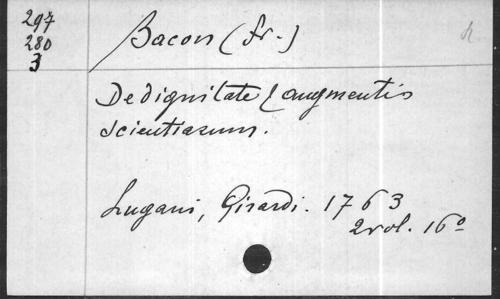 297
280
3
Bacon (Fr.)
De dignitate & augmentis
scientiarum.
Lugani, Girardi. 1763
2 vol. 16º